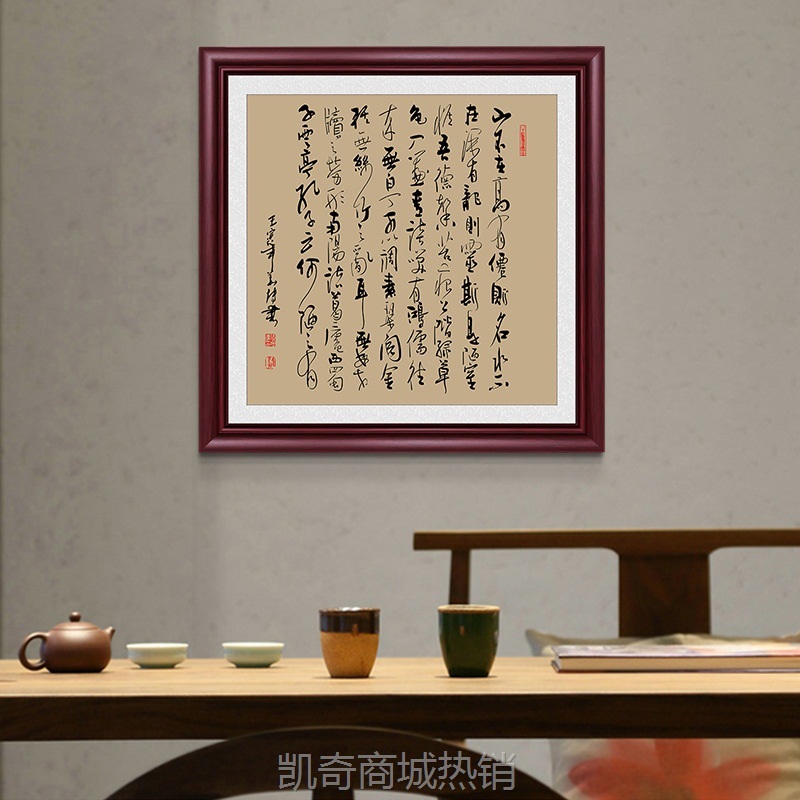 山不在高有僊則名水不
在深有龍則靈斯是陋室
惟吾德馨苔痕上階綠草
色入簾青談笑有鴻儒往
來無白丁可以調素琴閱金
經無絲竹之亂耳無案
牘之勞形南陽諸葛廬西蜀
子雲亭孔子云何陋之有
壬寅年
凯奇商城热销